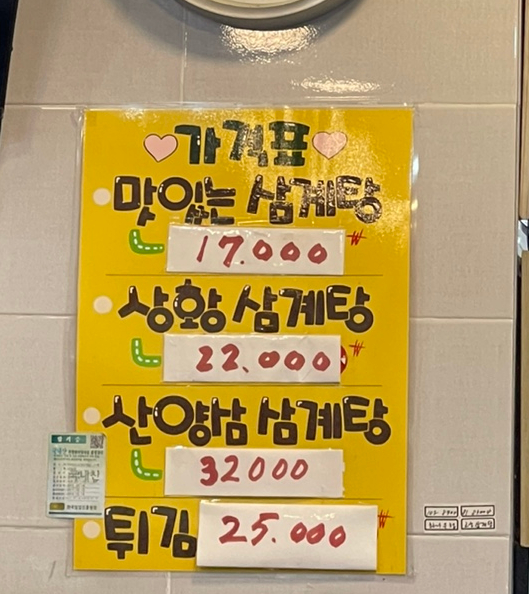 가격표
맛있는 삼계탕
17.000 ₩
상황 삼계탕
22.000 ₩
산양삼 삼계탕
32000
튀김 25.000 ₩